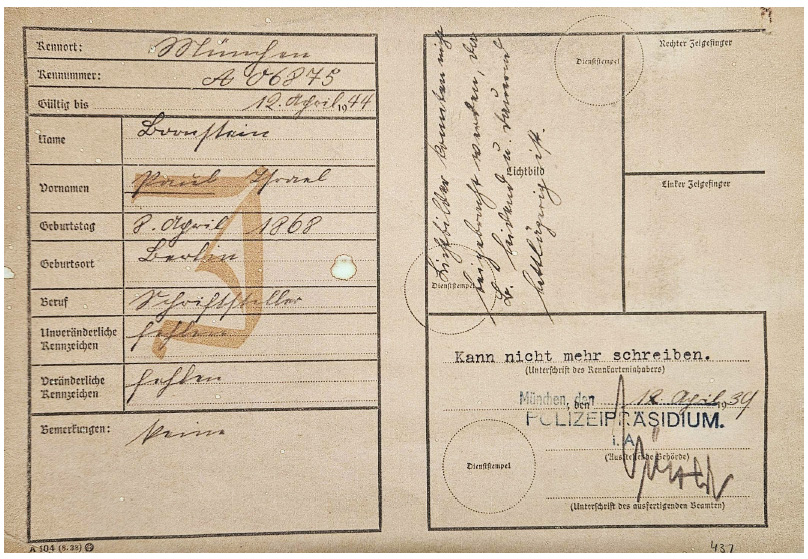 Kennort: München
Kennummer: A 06875
Gültig bis 12. April 1944
Name Bornstein
Vornamen Paul Israel
Geburtstag 8. April 1868
Geburtsort Berlin
Beruf Schriftsteller
Unveränderliche Kennzeichen fehlen
Veränderliche Kennzeichen fehlen
Bemerkungen: keine
J
A 104 (8.38)
Lichtbilder konnten nicht
beigebracht werden, da
B. leidend u. dauernd
bettlägerig ist.
Dienststempel
Lichtbild
Dienststempel
Rechter Zeigefinger
Linker Zeigefinger
Kann nicht mehr schreiben.
(Unterschrift des Kennkarteninhabers)
München, den
, den 12. April 1939
POLIZEIPRÄSIDIUM.
i. A.
(Ausstellende Behörde)
Dienststempel
(Unterschrift des ausfertigenden Beamten)
437